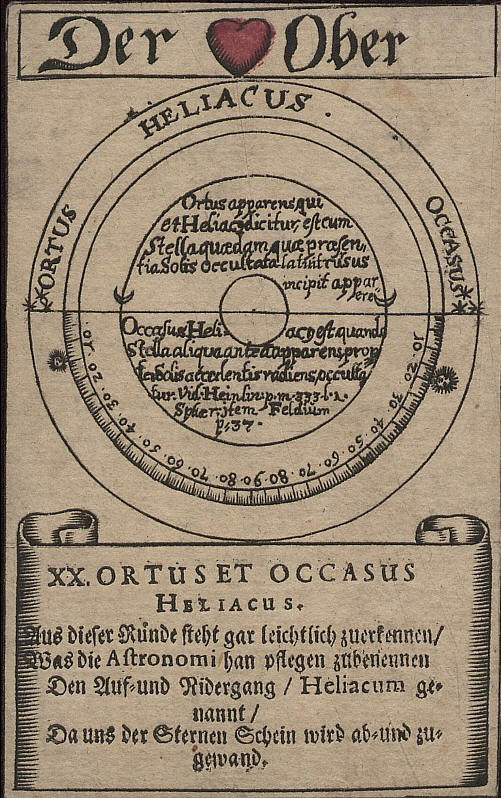 Der Ober
HELIACUS.
ORTUS
OCCASUS
Ortus apparens qui
et Heliacꝰ dicitur, est cum
Stella quædam, quæ præsen,
tia Solis occultata latuit rursus
incipit appar
ere
Occasus Heli- acꝰ est quando
Stella aliqua antea apparens, prop
ter Solis accedentis radiens, occulta
tur. Vid. Heinlin. p.m. 333. l. 1.
Sphær. item Feldium
p. 37.
10. 20. 30. 40. 50. 60. 70. 80. 90. 80. 70. 60. 50. 40. 30. 20. 10
XX. ORTUS ET OCCASUS
HELIACUS.
Aus dieser Ründe steht gar leichtlich zuerkennen/
Was die Astronomi han pflegen zubenennen
Den Auf- und Nidergang / Heliacum ge-
nannt /
Da uns der Sternen Schein wird ab- und zu-
gewand.